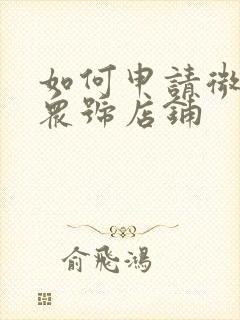 如何申請微
眾號店鋪
俞飛鴻